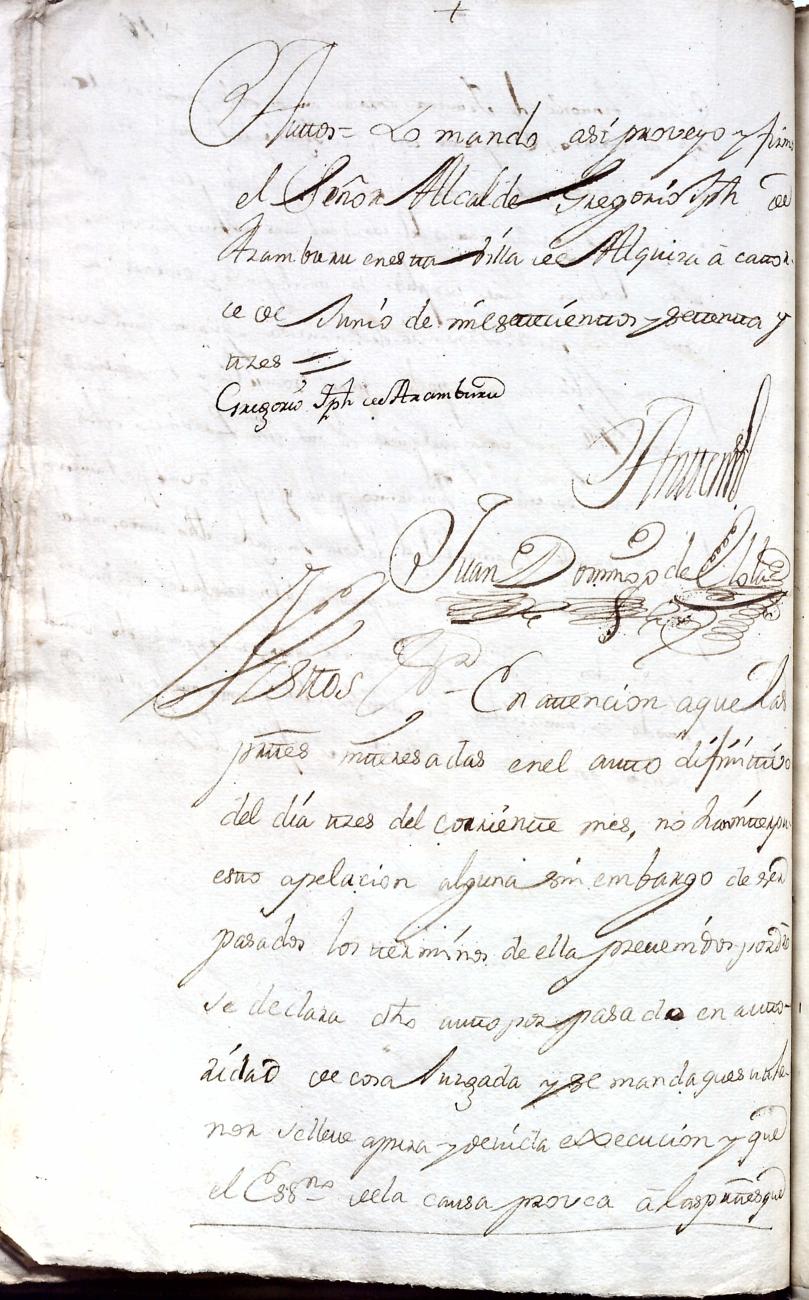 +
Auttos = Lo mando assi proveyo y firmo
el Señor Allcalde Gregorio Jph de
Aramburu en esta Villa de Alquiza â cator-
ce de Junio de mil settecientos y settenta y
tres =
Gregorio Jph de Aramburu
Antte mi
Juan Domingo de
Visttos & = En attencion a que las
parttes interesadas en el autto difinitivo
del dia tres del corriente mes, no han interpu-
esto apelacion alguna sin embargo de ser
pasados los terminos de ella prevenidos por dro
se declara dho autto por pasado en autto-
ridad de cosa Juzgada y se manda que su the-
nor se lleve a pura y devida execucion y que
el Essno de la causa provea â las parttes que